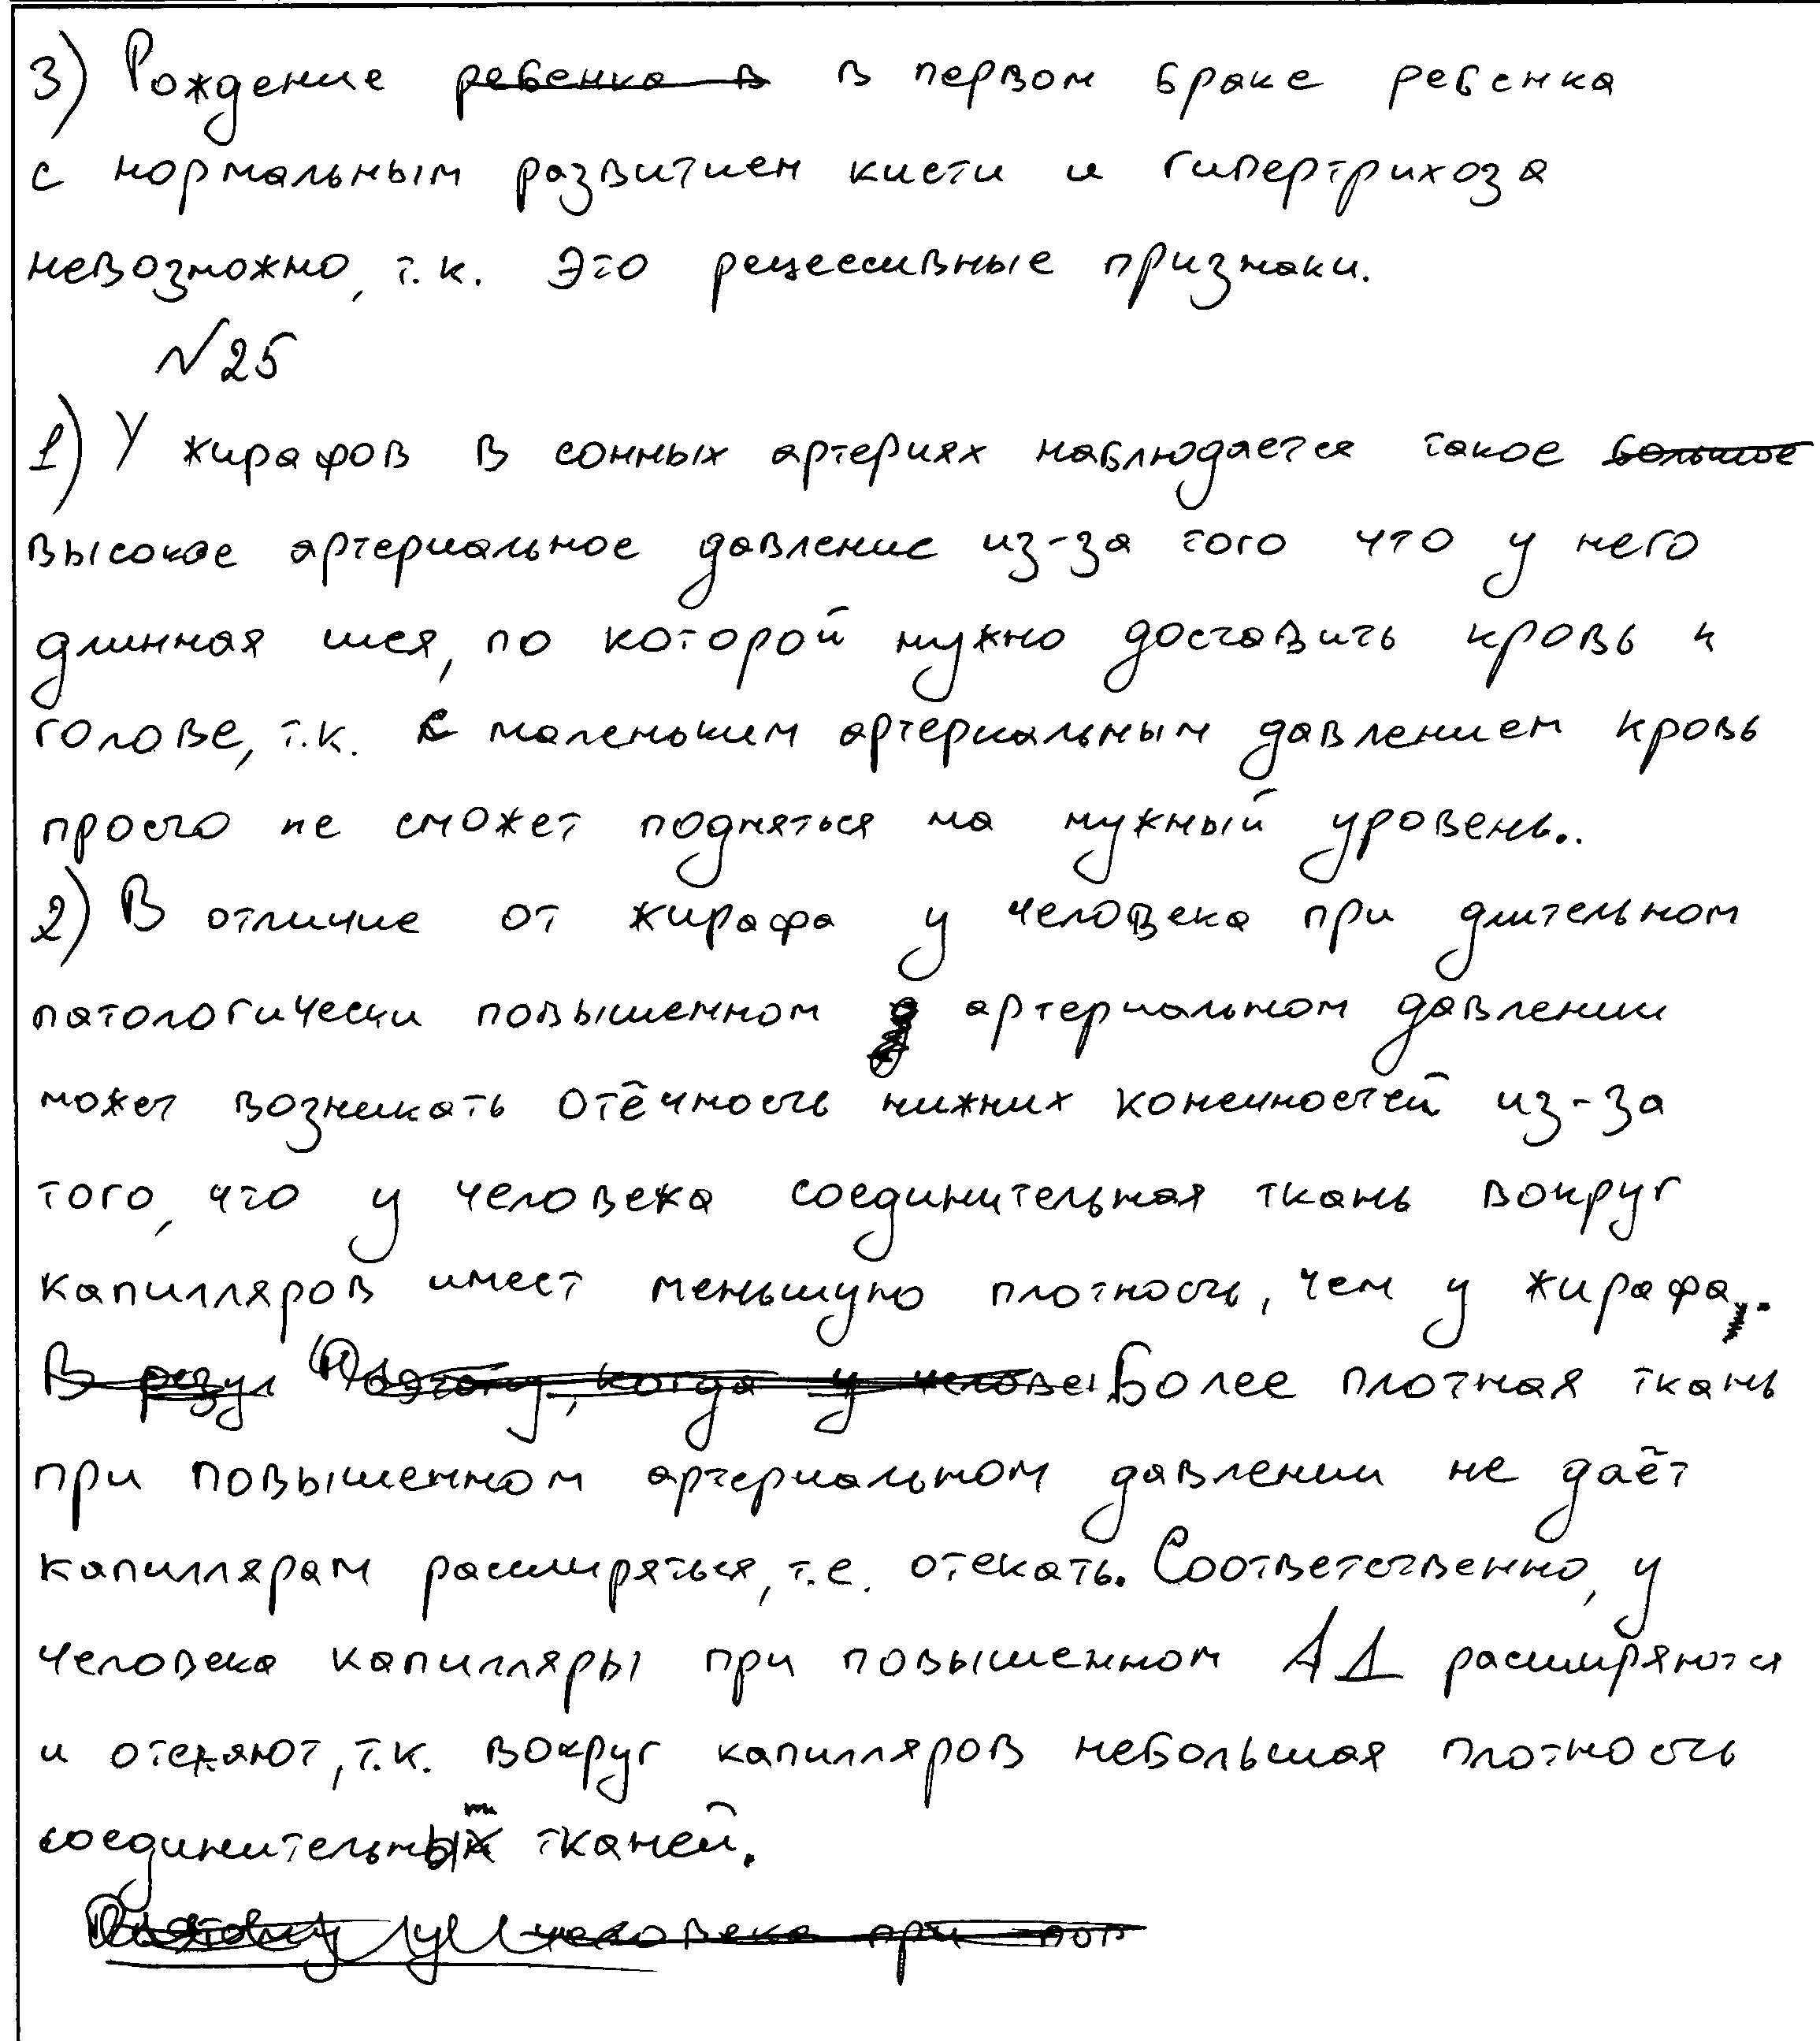 3) Рождение ребенка в в первом браке ребенка
с нормальным развитием кисти и гипертрихоза
невозможно, т.к. это рецессивные признаки.
№25
1) У жирафов в сонных артериях наблюдается такое большое
высокое артериальное давление из-за того что у него
длинная шея, по которой нужно доставить кровь к
голове, т.к. с маленьким артериальным давлением кровь
просто не сможет подняться на нужный уровень..
2) В отличие от жирафа у человека при длительном
патологически повышенном артериальном давлении
может возникать отёчность нижних конечностей из-за
того, что у человека соединительная ткань вокруг
капилляров имеет меньшую плотность, чем у жирафа.
В резул Поэтому, когда у челове Более плотная ткань
при повышенном артериальном давлении не даёт
капиллярам расширяться, т.е. отекать. Соответственно, у
человека капилляры при повышенном АД расширяются
и отекают, т.к. вокруг капилляров небольшая плотность
соединительных тканей.
Поэтому у человека при пов